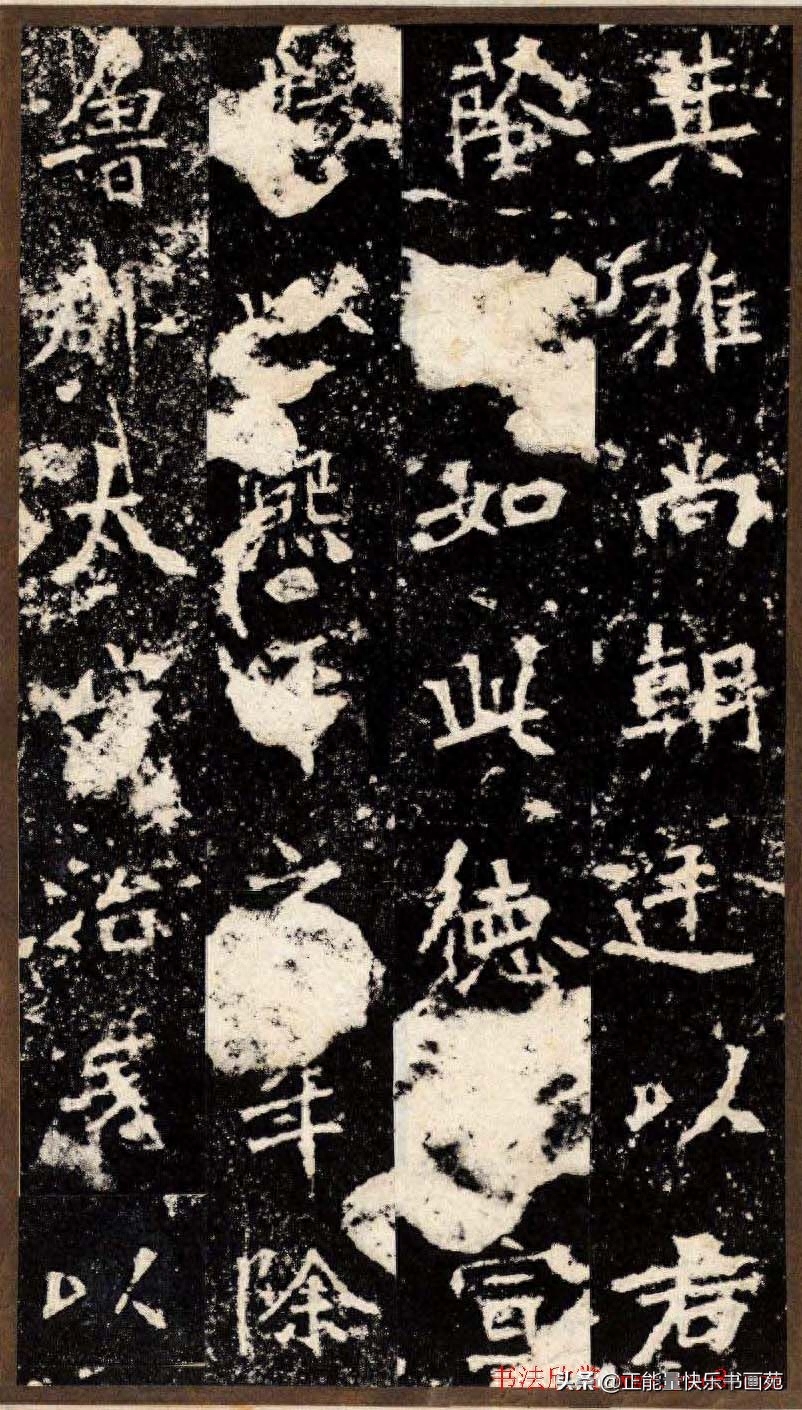 其雅尚朝廷以君
蔭如此德宣
熙平之年除
魯郡太守治民以
书法欣赏
头条@正能量快乐书画苑